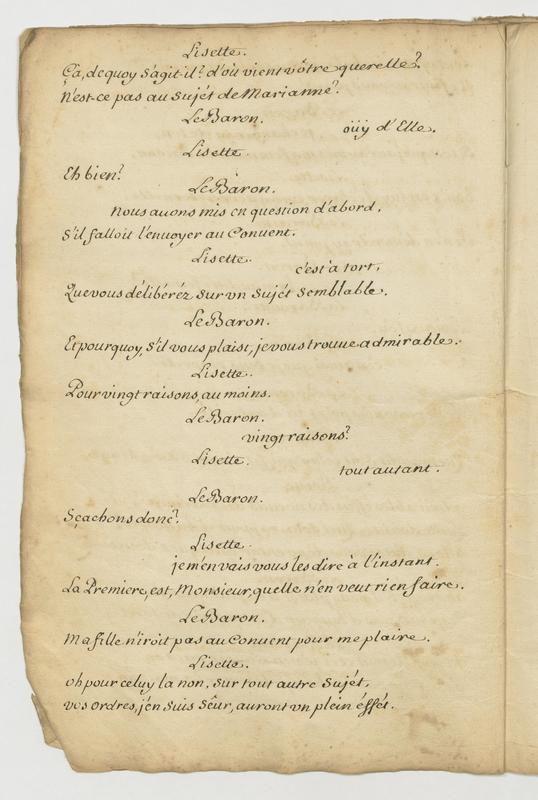 Lisette.
Ça, de quoy s'agit-il? d'où vient vôtre querelle?
N'est-ce pas au sujét de Marianne?
Le Baron.
oüy d'Elle.
Lisette.
Eh bien?
Le Baron.
nous auons mis en question d'abord,
S'il falloit l'enuoyer au Conuent.
Lisette.
c'est à tort,
Que vous délibéréz sur vn sujét semblable.
Le Baron.
Et pourquoy, s'il vous plaist, je vous trouue admirable.
Lisette.
Pour vingt raisons, au moins.
Le Baron.
vingt raisons?
Lisette.
tout autant.
Le Baron.
Sçachons donc?
Lisette.
je m'en vais vous les dire à l'instant.
La Premiere, est, Monsieur, quelle n'en veut rien faire.
Le Baron.
Ma fille n'iroit pas au Conuent pour me plaire.
Lisette.
oh pour celuy la non. sur tout autre sujét,
vos ordres, j'en suis sêur, auront vn plein éffét.